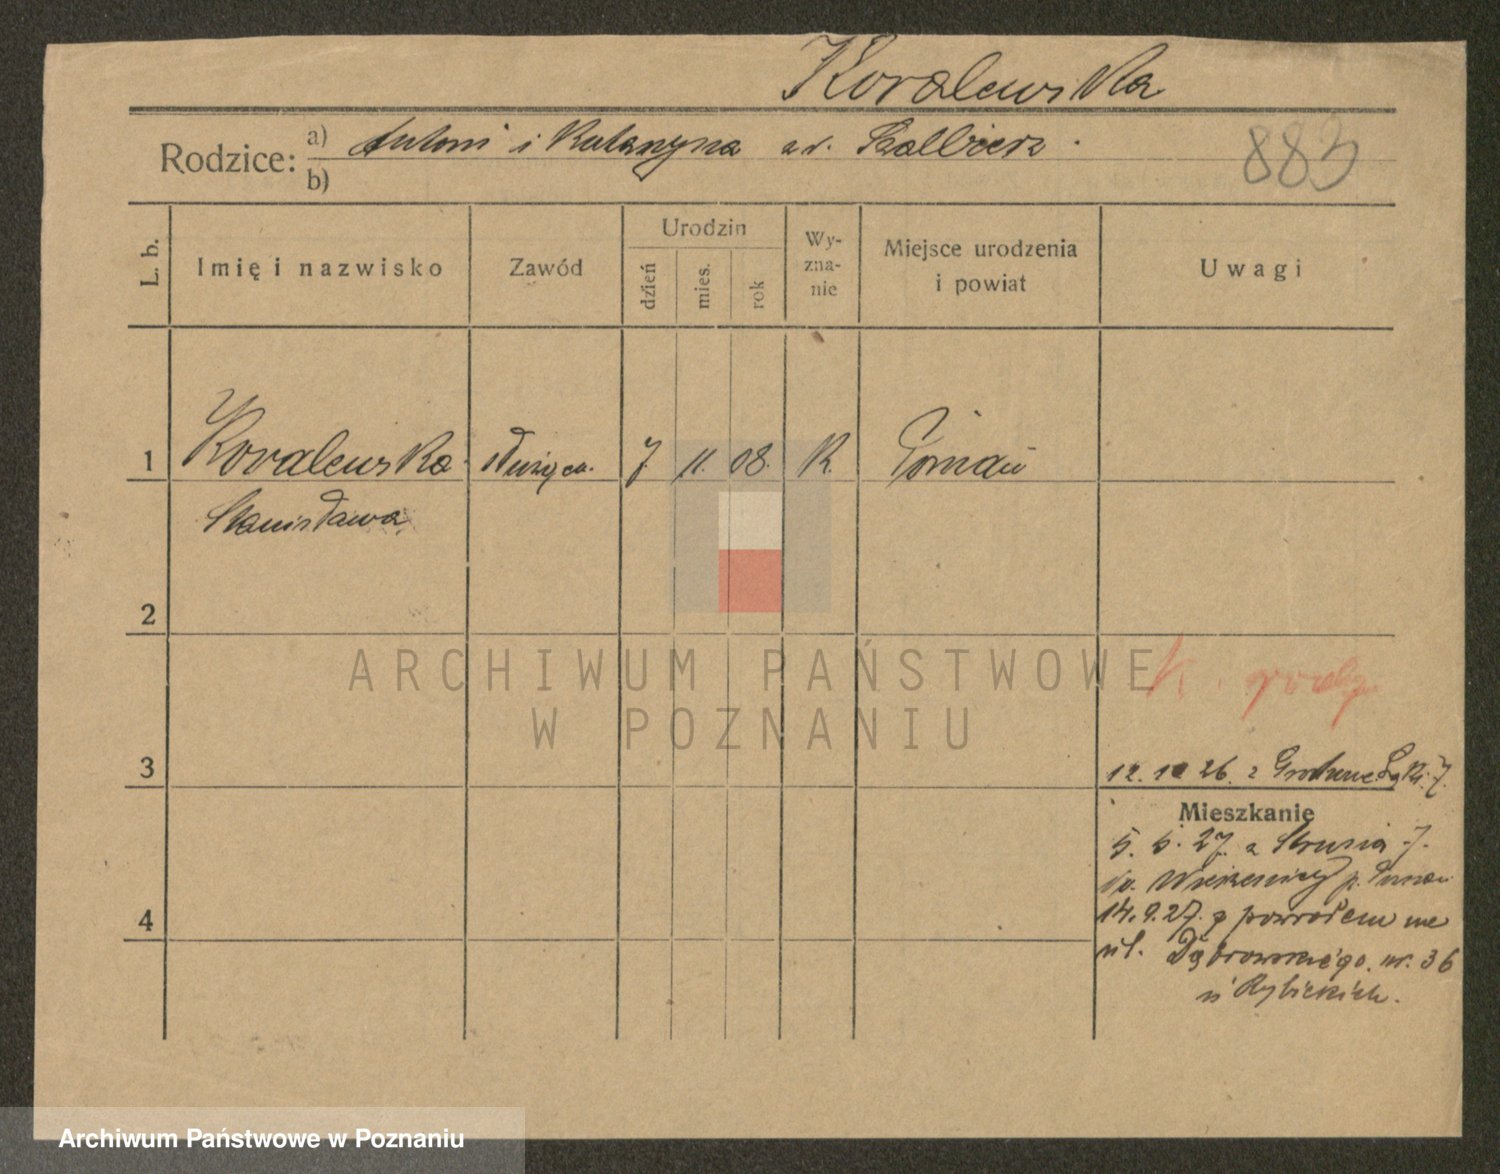 Kowalewska
Rodzice: a) Antoni i Katarzyna ur. Szalbierz.
b)
883
L. b.
Imię i nazwisko
Zawód
Urodzin
dzień
mies.
rok
Wy-
zna-
nie
Miejsce urodzenia
i powiat
Uwagi
1 Kowalewska służąca. 7. 11. 08. K. Poznań
Stanisława
2
ARCHIWUM PAŃSTWOWE
W POZNANIU
K.
3
12. 10 26. z
Mieszkanie
5. 5. 27. z Strusia 7.
p. Poznań
14. 9. 27. z powrotem na
ul. Dąbrowskiego nr. 36
u Rybickich.
4
Archiwum Państwowe w Poznaniu